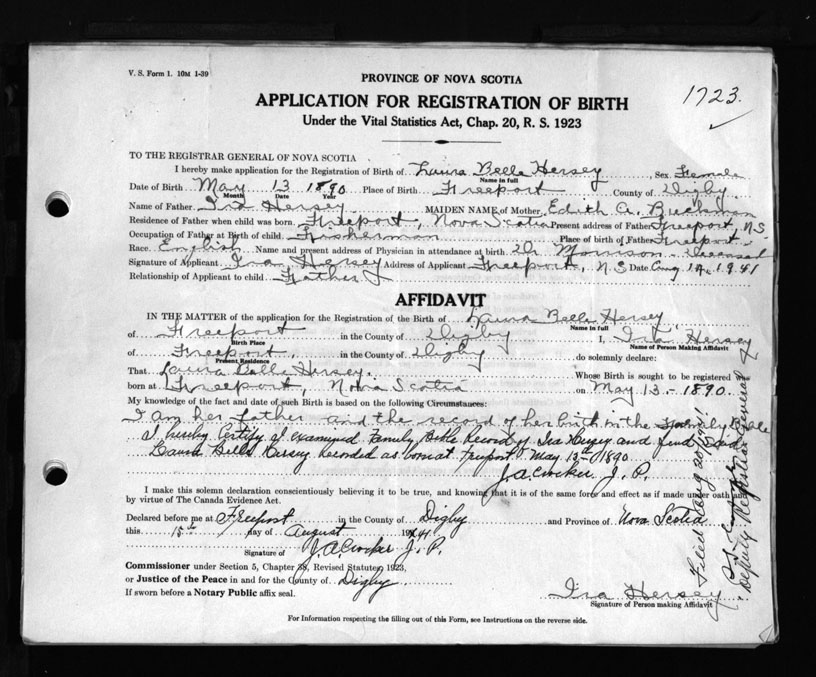 V. S. Form 1. 10M 1-39
PROVINCE OF NOVA SCOTIA
1723.
APPLICATION FOR REGISTRATION OF BIRTH
Under the Vital Statistics Act, Chap. 20, R. S. 1923
TO THE REGISTRAR GENERAL OF NOVA SCOTIA
I hereby make application for Registration of Birth of Laura Belle Hersey, Sex Female
Name in full
Date of Birth May 13 1890 Place of Birth Freeport County of Digby
Month Date Year
Name of Father Ira Hersey MAIDEN NAME of Mother Edith A.
Residence of Father when child was born Freeport, Nova Scotia Present address of Father Freeport, N S
Occupation of Father at Birth of child Fisherman Place of birth of Father Freeport
Race English Name and present address of Physician in attendance at birth Dr Morrison Deceased
Signature of Applicant Ira Hersey Address of Applicant Freeport, N S Date Aug 1941
Relationship of Applicant to child Father
AFFIDAVIT
IN THE MATTER of the application for the Registration of the Birth of Laura Belle Hersey
Name in full
of Freeport in the County of Digby I, Ira Hersey
Birth Place
Name of Person Making Affidavit
of Freeport, in the County of Digby do solemnly declare:
Present Residence
That Laura Belle Hersey. Whose Birth is sought to be registered was
born at Freeport, Nova Scotia on May 13 - 1890.
My knowledge of the fact and date of such Birth is based on the following Circumstances:
I am her father and the record of her birth in the Family Bible
I hereby Certify I examined Family Bible Record of Ira Hersey and find said
Laura Belle Hersey Recorded as born at Freeport May 13th 1890
J. A. Crocker J. P.
I make this solemn declaration conscientiously believing it to be true, and knowing that it is of the same force and effect as if made under oath and
by virtue of The Canada Evidence Act.
Declared before me at Freeport in the County of Digby and Province of Nova Scotia
this 15th day of August 1941
Signature of J. A. Crocker J. P.
Commissioner under Section 5, Chapter 38, Revised Statutes, 1923,
or Justice of the Peace in and for the County of Digby
If sworn before a Notary Public affix seal.
Ira Hersey
Signature of Person making Affidavit
For Information respecting the filling out of this Form, see Instructions on the reverse side.
Filed Aug 20/41
Deputy Registrar General